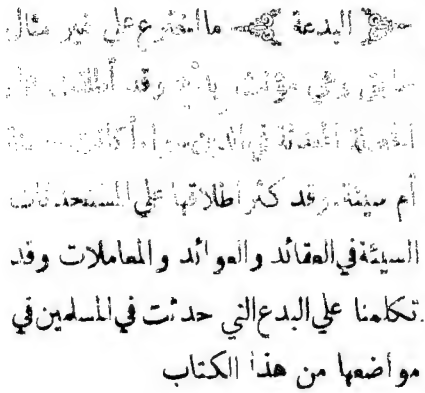 البدعة ما اخترع على غير مثال
سابق وهي مؤنث بدع وقد أطلقت على
الخصلة المحدثة في الدين سواء أكانت حسنة
أم سيئة. وقد كثر اطلاقها على المستحدثات
السيئة في العقائد والعوائد والمعاملات وقد
تكلمنا على البدع التي حدثت في المسلمين في
مواضعها من هذا الكتاب